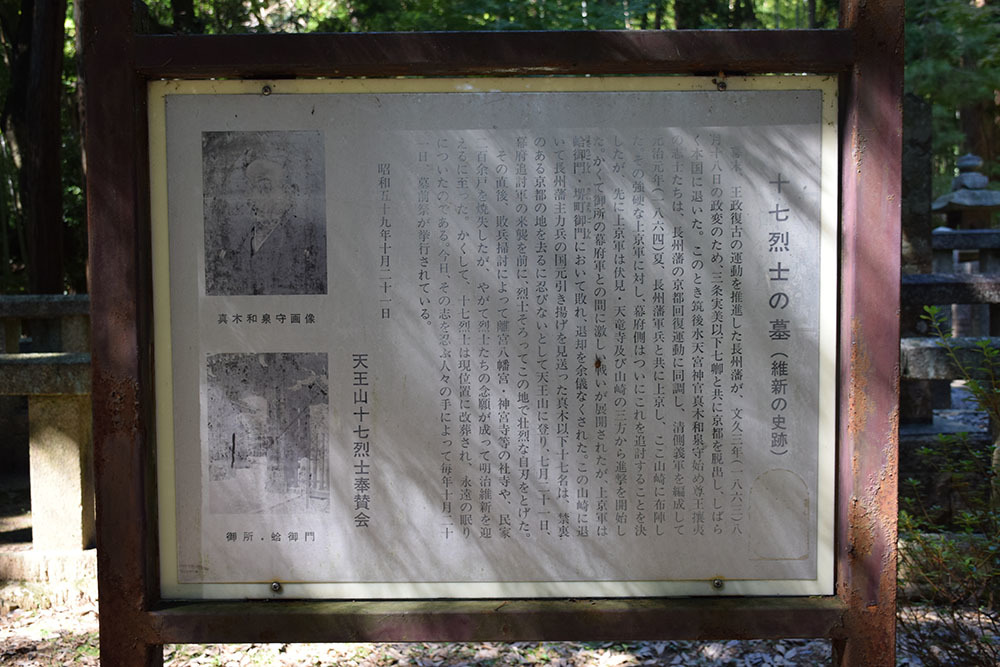 十七烈士の墓（維新の史跡）
王政復古の運動を推進した長州藩が、文久三年（一八六三）八
月十八日の政変のため、三条実美以下七卿と共に京都を脱出し、しばら
く本国に退いた。このとき筑後水天宮神官真木和泉守始め尊王攘夷
の志士たちは、長州藩の京都回復運動に同調し、清側義軍を編成して
元治元年（一八六四）夏、長州藩軍兵と共に上京し、ここ山崎に布陣し
た。その強硬な上京軍に対し、幕府側はついにこれを追討することを決
したが、先に上京軍は伏見・天竜寺及び山崎の三方から進撃を開始し
た。かくて御所の幕府軍との間に激しい戦いが展開されたが、上京軍は
蛤御門・堺町御門において敗れ、退却を余儀なくされた。この山崎に退
いて長州藩主力兵の国元引き揚げを見送った真木以下十七名は、禁裏
のある京都の地を去るに忍びないとして天王山に登り、七月二十一日、
幕府追討軍の来襲を前に、烈士そろってこの地で壮烈な自刃をとげた。
その直後、敗兵掃討によって離宮八幡宮・神宮寺等の社寺や、民家
二百余戸を焼失したが、やがて烈士たちの念願が成って明治維新を迎
えるに至った。かくして、十七烈士は現位置に改葬され、永遠の眠り
についたのである。今日、その志を忍ぶ人々の手によって毎年十月二十
一日、墓前祭が挙行されている。
昭和五十九年十月二十一日
天王山十七烈士奉賛会
真木和泉守画像
御所・蛤御門